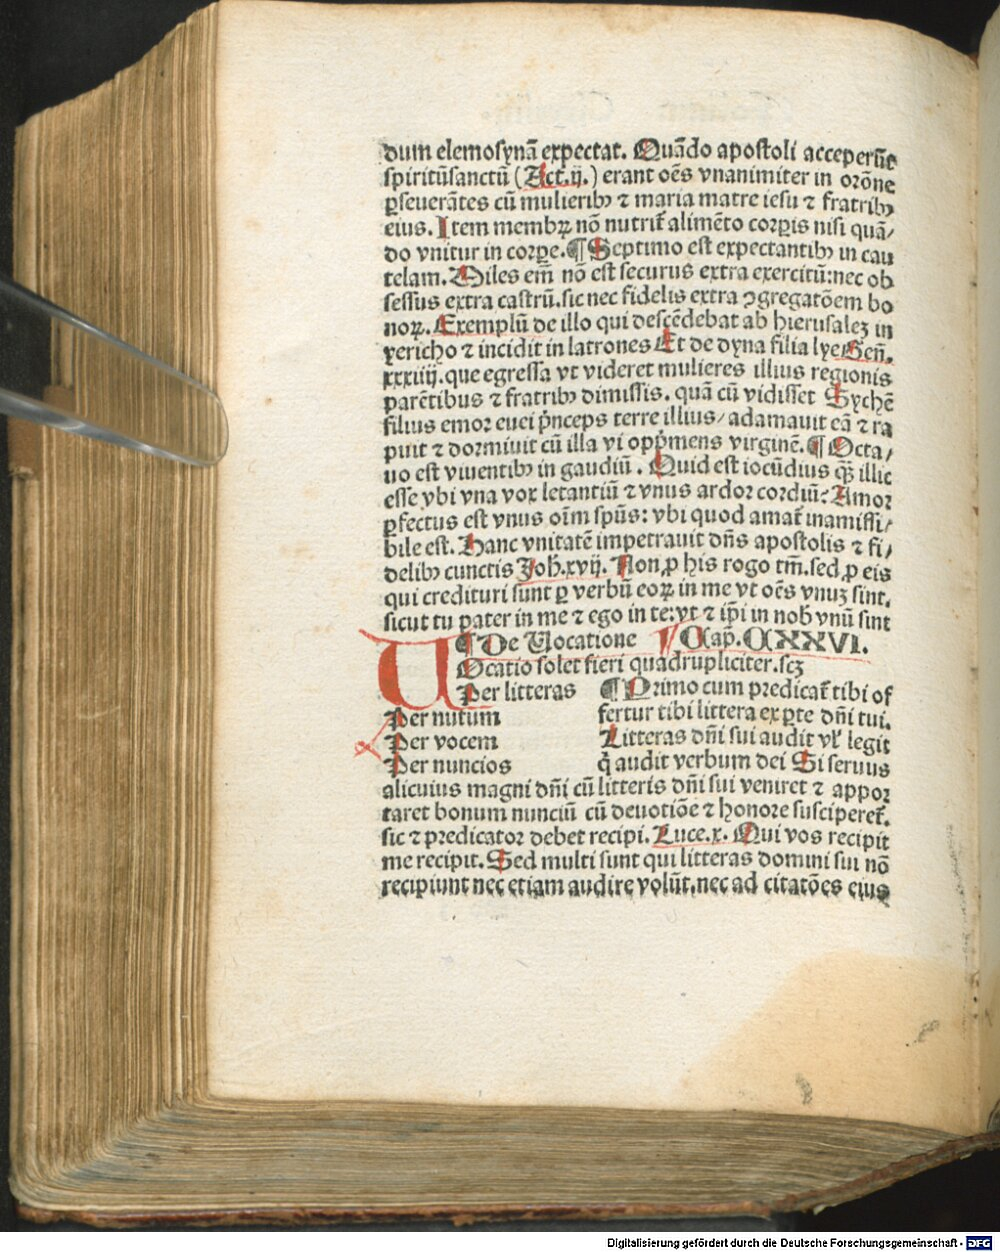 dum elemosynā expectat. Quādo apostoli acceperūt
spiritūsanctū (Act.ij.) erant oēs vnanimiter in orōne
ꝑseuerātes cū mulieribꝫ ⁊ maria matre iesu ⁊ fratribꝫ
eius. Item membꝝ nō nutrit̄ alimēto corꝑis nisi quā/
do vnitur in corꝑe. ¶ Septimo est expectantibꝫ in cau
telam. Miles em̄ nō est securus extra exercitū: nec ob
sessus extra castrū. sic nec fidelis extra ꝯgregatōem bo
noꝝ. Exemplū de illo qui descēdebat ab hierusaleꝫ in
yericho ⁊ incidit in latrones Et de dyna filia lye Gen̄.
xxxiiij. que egressa vt videret mulieres illius regionis
parētibus ⁊ fratribꝫ dimissis. quā cū vidisset Sychē
filius emor euei p̄nceps terre illius/ adamauit eā ⁊ ra
puit ⁊ dormiuit cū illa vi opp̄mens virginē. ¶ Octa/
uo est viuentibꝫ in gaudiū. Quid est iocūdius qꝫ̄ illic
esse vbi vna vox letantiū ⁊ vnus ardor cordiū? Amor
ꝑfectus est vnus oīm spūs: vbi quod amat̄ inamissi/
bile est. Hanc vnitatē impetrauit dn̄s apostolis ⁊ fi/
delibꝫ cunctis Joh̄.xvij. Non ꝓ his rogo tm̄. sed ꝓ eis
qui credituri sunt ꝑ verbū eoꝝ in me vt oēs vnuꝫ sint.
sicut tu pater in me ⁊ ego in te: vt ⁊ ip̄i in nob̄ vnū sint
¶ De Uocatione ¶ Cap̄. CXXVI.
UOcatio solet fieri quadrupliciter. scꝫ
Per litteras ¶ Primo cum predicat̄ tibi of
Per nutum fertur tibi littera ex ꝑte dn̄i tui.
Per vocem Litteras dn̄i sui audit vl̓ legit
Per nuncios q̇ audit verbum dei Si seruus
alicuius magni dn̄i cū litteris dn̄i sui veniret ⁊ appor
taret bonum nunciū cū deuotiōe ⁊ honore susciperet̄.
sic ⁊ predicator debet recipi. Luce.x. Qui vos recipit
me recipit. Sed multi sunt qui litteras domini sui nō
recipiunt nec etiam audire volūt. nec ad citatōes eius
Digitalisierung gefördert durch die Deutsche Forschungsgemeinschaft - DFG